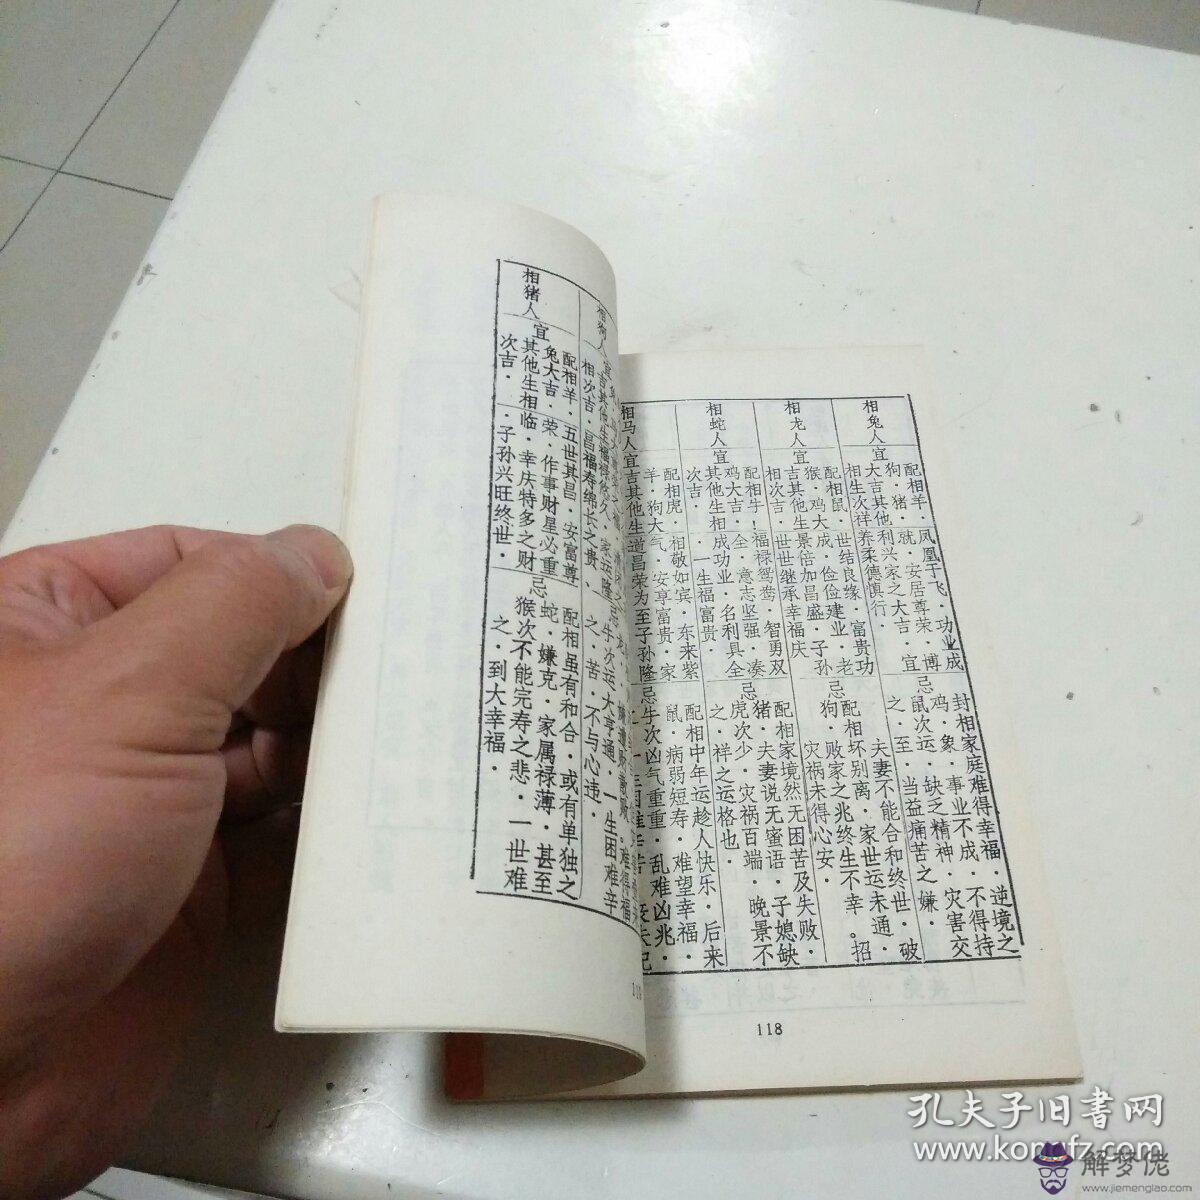 相兔人
宜
配相羊·
狗·猪·
大吉其他
相生次祥
凤凰于飞·功业成
就·安居尊荣·博
利兴家之大吉·宜
养柔德慎行·
忌
封相家庭难得幸福·逆境之
鸡·象·事业不成·不得持
鼠次运·缺乏精神·灾害交
之·至·当益痛苦之嫌·
相龙人
宜
配相鼠·
猴·鸡大
吉其他生
相次吉·
世结良缘·富贵功
成·俭俭建业·老
景倍加昌盛·子孙
世世继承幸福庆
忌
夫妻不能合和终世·破
配相坏别离·家世运未通·
狗·败家之兆终生不幸。招
灾祸未得心安·
相蛇人
宜
配相牛！
鸡大吉·
其他生相
次吉·
福禄鸳鸯·智勇双
全·意志坚强·凑
成功业·名利具全
·一生福富贵·
忌
配相家境然无困苦及失败·
猪·夫妻说无蜜语·子媳缺
虎次少·灾祸百端·晚景不
之·祥之运格也·
相马人
宜
配相虎·
羊·狗大
吉其他生
相敬如宾·东来紫
气·安享富贵·家
道昌荣为至子孙隆
忌
配相中年运趁人快乐·后来
鼠·病弱短寿·难望幸福·
牛次凶气重重·乱难凶兆·
118
相狗人
宜
吉其他生
相次吉·
福祥悠久·家运隆
昌福寿绵长之贵·
忌
牛次运大亨通·一生困难辛
之·苦·不与心违·
相猪人
宜
配相羊·
兔大吉·
其他生相
次吉·
五世其昌·安富尊
荣·作事财星必重
临·幸庆特多之财
·子孙兴旺终世·
忌
配相虽有和合·或有单独之
蛇·嫌克·家属禄薄·甚至
猴次不能完寿之悲·一世难
之·到大幸福·
孔夫子旧书网
www.kongfz.com
解梦佬
www.jiemenglao.com